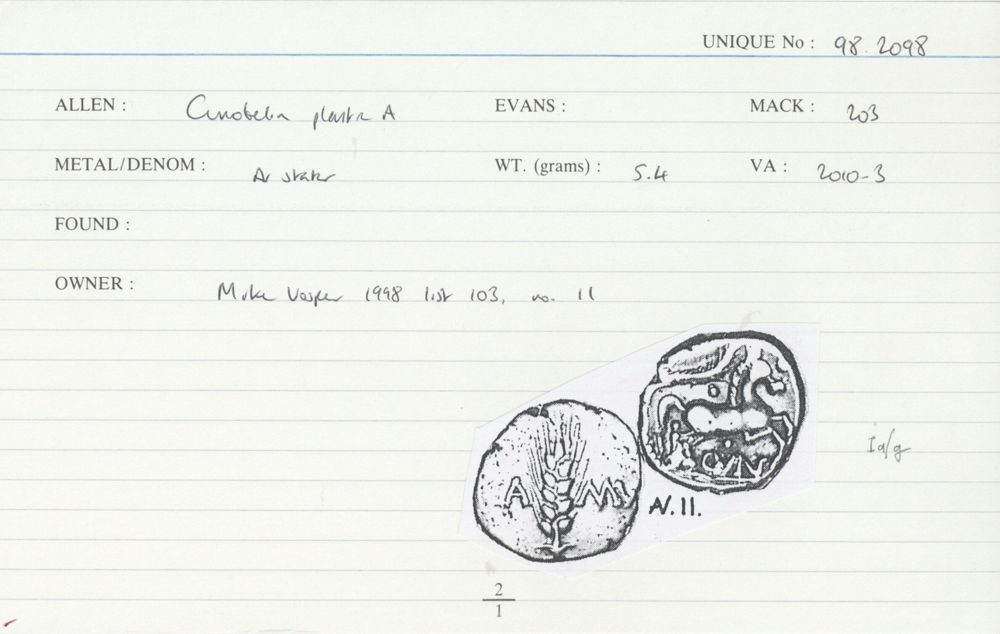 UNIQUE No : 98.2098
ALLEN : Cunobelin plastic A EVANS : MACK : 203
METAL/DENOM : Av stater WT. (grams) : 5.4 VA : 2010-3
FOUND :
OWNER : Mike Vosper 1998 list 103, no. 11
Ia/g
A M
CVN
AV.11.
2
1